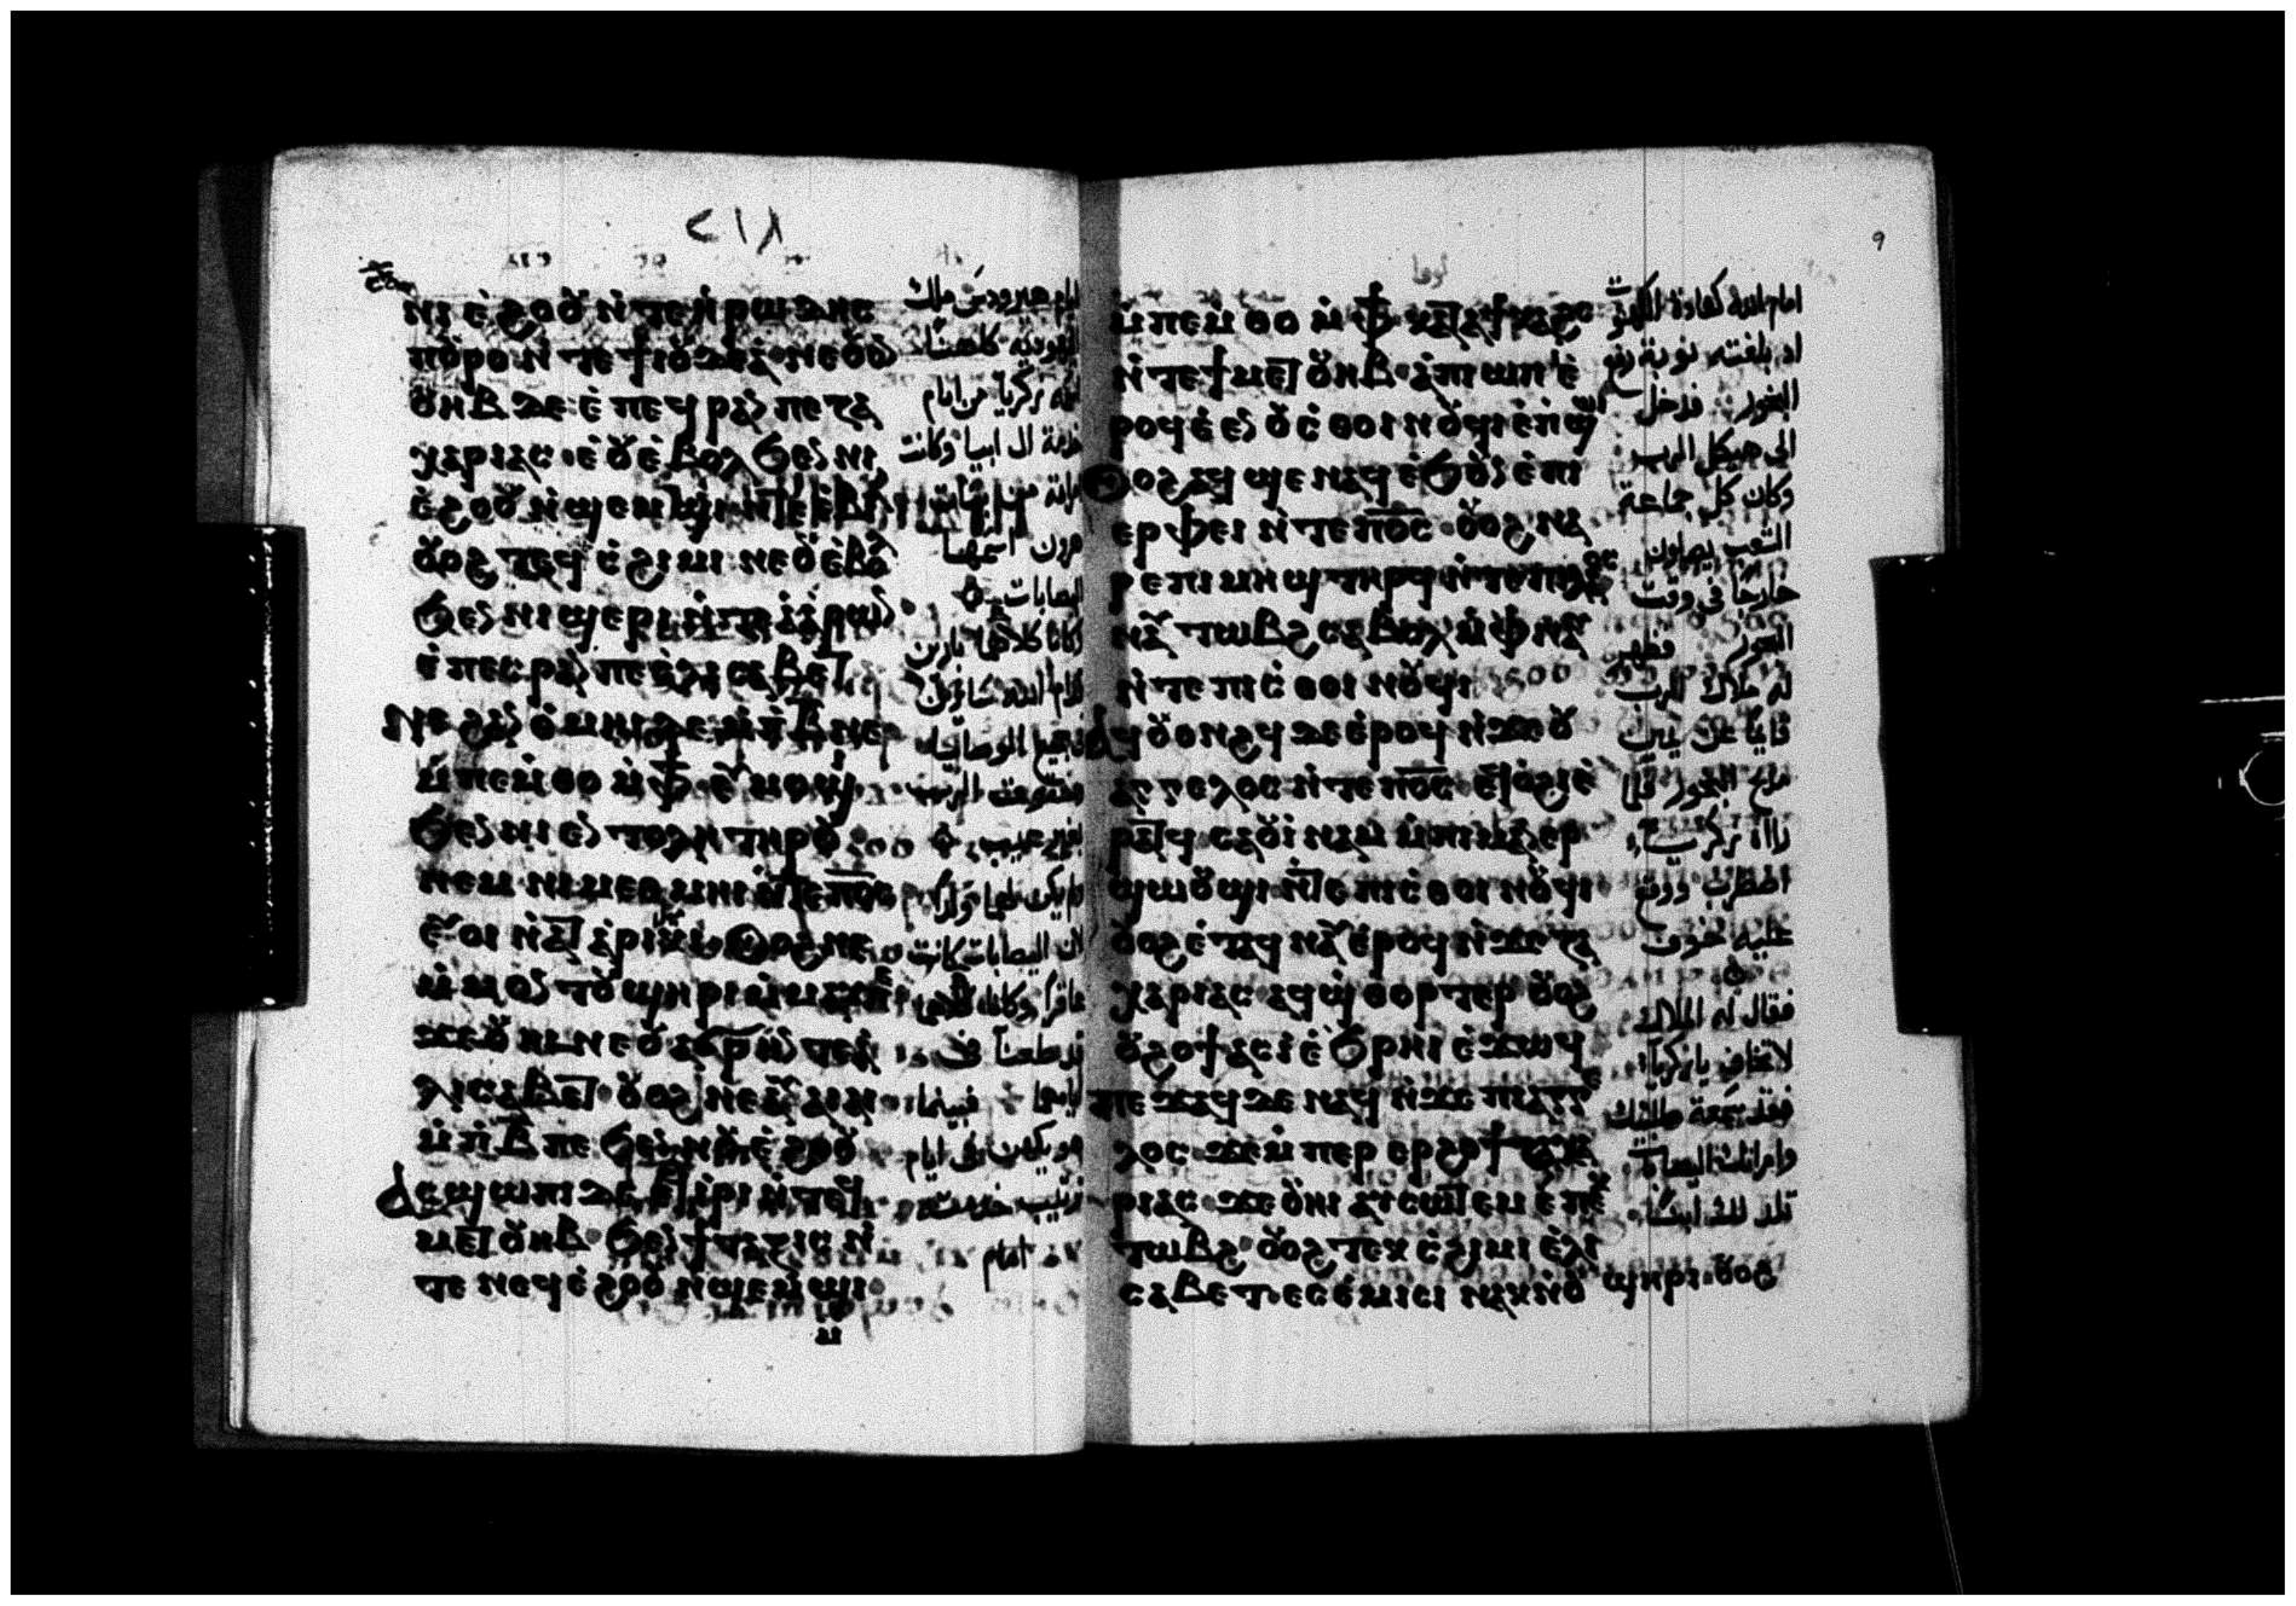 ⲛⲓ ⲉ̀ϩⲟⲟⲩ ⲛ̀ⲧⲉ ⲏ̀ⲣⲱⲇⲏⲥ
ⲡⲟⲩⲣⲟ ⲛ̀ⲧⲉ ϯⲓⲟⲩⲇⲉⲁ̀ ⲛⲉⲟⲩⲟⲛ
ⲟⲩⲏⲃ ⲇⲉ ⲉ̀ⲡⲉϥⲣⲁⲛ ⲡⲉ ⲍⲁ
ⲭⲁⲣⲓⲁⲥ ⲉ̀ⲟⲩⲉ̀ⲃⲟⲗ ϧⲉⲛ ⲛⲓ
ⲉ̀ϩⲟⲟⲩ ⲛ̀ϣⲉⲙϣⲓ
ⲟⲩⲟϩ ⲧⲉϥⲥ̀ϩⲓⲙⲓ ⲛⲉⲟⲩⲉ̀ⲃⲟⲗ
ϧⲉⲛ ⲛⲓϣⲉⲣⲓ ⲛ̀ⲧⲉ ⲁ̀ⲁ̀ⲣⲱⲛ
ⲉ̀ⲡⲉⲥⲣⲁⲛ ⲡⲉ ⲉ̀ⲗⲓⲥⲁⲃⲉⲧ
ⲛⲉ ϩⲁⲛ ⲟ̀ⲙⲏⲓ ⲇⲉ ⲙ̀ⲡⲃ̅ ⲛⲉ
ⲙ̀ⲡⲉⲙ̀ⲑⲟ ⲙ̀ⲫϯ ⲉⲩⲙⲟϣⲓ
ϧⲉⲛ ⲛⲓⲉⲛⲧⲟⲗⲏ ⲧⲏⲣⲟⲩ
ⲛⲉⲙ ⲛⲓⲙⲉⲑⲙⲏⲓ ⲛ̀ⲧⲉ ⲡⲟ̅ⲥ̅
ⲉⲩⲟⲓ ⲛ̀ⲁⲧⲁ̀ⲣⲓⲕⲓ ⲟⲩⲟϩ ⲛⲉ
ⲙ̀ⲙⲟⲛ ⲧⲟⲩ ϣⲏⲣⲓ ⲙ̀ⲙⲁⲩ ⲡⲉ
ϫⲉ ⲟⲩⲏⲓ ⲛⲉ ⲟⲩⲁϭⲣⲏⲛ ⲧⲉ ⲉ̀
ⲗⲓⲥⲁⲃⲉⲧ ⲟⲩⲟϩ ⲛⲉⲁⲩⲁⲓⲁⲓ
ⲙ̀ⲡⲃ̅ ⲡⲉ ϧⲉⲛ ⲛⲟⲩⲉ̀ϩⲟⲟⲩ
ⲁⲥϣⲱⲡⲓ ⲇⲉ ⲉⲧⲓ̀ⲣⲓ ⲛ̀ⲧⲉϥ
ⲙⲉⲧⲟⲩⲏⲃ ϧⲉⲛ ϯⲧⲁⲝⲓⲥ ⲛ̀
ⲧⲉ ⲛⲉϥⲉ̀ϩⲟⲟⲩ ⲛ̀ϣⲉⲙ̀ϣⲓ
ⲙ
ايام هيرودس ملك
اليهودية كاهنا
اسمه زكريا من ايام
خدمة ال ابيا وكانت
هرون اسمها
اليصابات
وكانا كلاهما بارين
قدام الله سائرين
في جميع الوصايا
وحقوق الرب
بغير عيب
لان اليصابات كانت
عاقرا وكانا كلاهما
قد طعنا في
ايامهما فبينما
هو يكهن في ايام
ترتيب خدمته
امام
٩
ⲙ̀ⲡⲉⲙ̀ⲑⲟ ⲙ̀ⲫϯ ⲕⲁⲧⲁ ϯⲕⲁϩⲥ
ⲛ̀ⲧⲉ ϯⲙⲉⲧⲟⲩⲏⲃ ⲁ̀ⲡⲓⲱⲡ ⲉ̀
ⲣⲟϥ ⲉ̀ⲉⲛ ⲟⲩⲥ̀ⲑⲟⲓⲛⲟⲩϥⲓ ⲉ̀ⲡϣⲱⲓ
ⲟⲩⲟϩ ⲁϥϣⲉⲛⲁϥ ⲉ̀ϧⲟⲩⲛ ⲉ̀ⲡⲓ
ⲉⲣⲫⲉⲓ ⲛ̀ⲧⲉ ⲡⲟ̅ⲥ̅ ⲟⲩⲟϩ ⲛⲁ
ⲣⲉ ⲡⲓⲙⲏϣ ⲧⲏⲣϥ ⲛ̀ⲧⲉ ⲡⲓⲗⲁⲟⲥ
ⲛⲁⲩⲧⲱⲃϩ ⲥⲁⲃⲟⲗ ⲙ̀ⲫⲛⲁⲩ
ⲛ̀ⲧⲉ ⲡⲓⲥ̀ⲑⲟⲓⲛⲟⲩϥⲓ
ⲁϥⲟⲩⲟⲛϩϥ ⲇⲉ ⲉ̀ⲣⲟϥ ⲛ̀ϫⲉ ⲟⲩ
ⲁⲅⲅⲉⲗⲟⲥ ⲛ̀ⲧⲉ ⲡⲟ̅ⲥ̅ ⲉϥⲟ̀ϩⲓ ⲉ̀
ⲣⲁⲧϥ ⲥⲁⲟⲩⲓ̀ⲛⲁⲙ ⲙ̀ⲡⲓⲙⲁⲛⲉⲣ
ϣⲱⲟⲩϣⲓ ⲛ̀ⲧⲉ ⲡⲓⲥ̀ⲑⲟⲓⲛⲟⲩϥⲓ
ⲟⲩⲟϩ ⲉ̀ⲧⲁϥⲛⲁⲩ ⲉ̀ⲣⲟϥ ⲛ̀ϫⲉ ⲍⲁ
ⲭⲁⲣⲓⲁⲥ ⲁϥϣ̀ⲑⲟⲣⲧⲉⲣ ⲟⲩⲟϩ
ⲟⲩϩⲟϯ ⲁⲥⲓ̀ ⲉ̀ϩ̀ⲣⲏⲓ ⲉ̀ϫⲱϥ
ⲡⲉϫⲁϥ ⲇⲉ ⲛⲁϥ ⲛ̀ϫⲉ ⲡⲓⲁⲅⲅⲉ
ⲗⲟⲥ ϫⲉ ⲙ̀ⲡⲉⲣⲉⲣϩⲟϯ ⲍⲁⲭⲁ
ⲣⲓⲁⲥ ϫⲉ ⲟⲩⲏⲓ ⲁⲩⲥⲱⲧⲉⲙ ⲉ̀ⲡⲉⲕ
ⲧⲱⲃϩ ⲟⲩⲟϩ ⲧⲉⲕⲥ̀ϩⲓⲙⲓ ⲉ̀ⲗⲓ
ⲥⲁⲃⲉⲧ ⲉⲥⲉ̀ⲙⲓⲥⲓ ⲛⲁⲕ ⲛ̀ⲟⲩ ϣⲏⲣⲓ ⲟⲩⲟϩ
امام الله كعادة الكهنوت
اذ بلغته نوبة رفع
البخور فدخل
الى هيكل الرب
وكان كل جماعة
الشعب يصلون
خارجا في وقت
البخور فظهر
له ملاك الرب
قايما عن يمين
مذبح البخور فلما
راه زكريا
اضطرب ووقع
عليه خوف
فقال له الملاك
لا تخاف يا زكريا
فقد سمعة طلبتك
وامراتك اليصابات
تلد لك ابنا